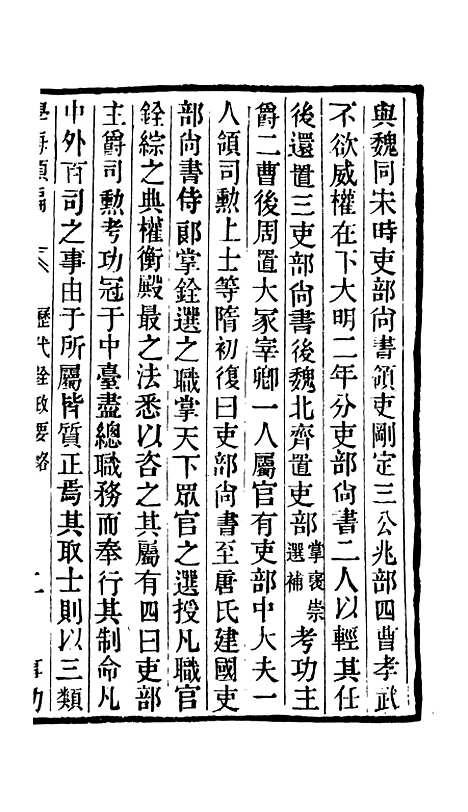 與魏同宋時吏部尚書領吏剛定三公兆部四曹孝武
不欲威權在下大明二年分吏部尚書二人以輕其任
後還置三吏部尚書後魏北齊置吏部掌褒崇選補考功主
爵二曹後周置大冢宰卿一人屬官有吏部中大夫一
人領司勳上士等隋初復曰吏部尚書至唐氏建國吏
部尚書侍郎掌銓選之職掌天下眾官之選授凡職官
銓綜之典權衡殿最之法悉以咨之其屬有四曰吏部
主爵司勳考功冠于中臺盡總職務而奉行其制命凡
中外百司之事由于所屬皆質正焉其取士則以三類
學海類編 歷代銓政要略 二 事功